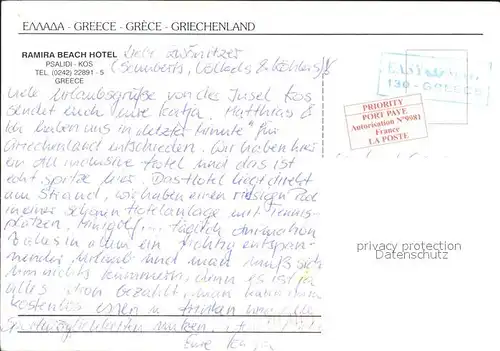 ΕΛΛΑΔΑ - GREECE - GRÈCE - GRIECHENLAND
RAMIRA BEACH HOTEL
PSALIDI - KOS
TEL. (0242) 22891 - 5
GREECE
Liebe Zwönitzer
viele Urlaubsgrüße von der Insel Kos
sendet euch Eure Katja. Matthias &
ich haben uns in letzter Minute für
Griechenland entschieden. Wir haben hier
ein All inclusive Hotel und das ist
echt spitze hier. Das Hotel liegt direkt
am Strand, wir haben einen riesigen Pool
in einer schönen Hotelanlage mit Tennis-
plätzen, Minigolf, ... täglich Animation
Alles in allem ein richtig entspan-
nender Urlaub und man muß sich
um nichts kümmern, denn es ist ja
alles schon bezahlt, man kann immer
kostenlos essen & trinken und alle
Sportmöglichkeiten nutzen.
Eure Katja
130 - GREECE
PRIORITY
PORT PAYÉ
Autorisation N°9981
France
LA POSTE
privacy protection
Datenschutz